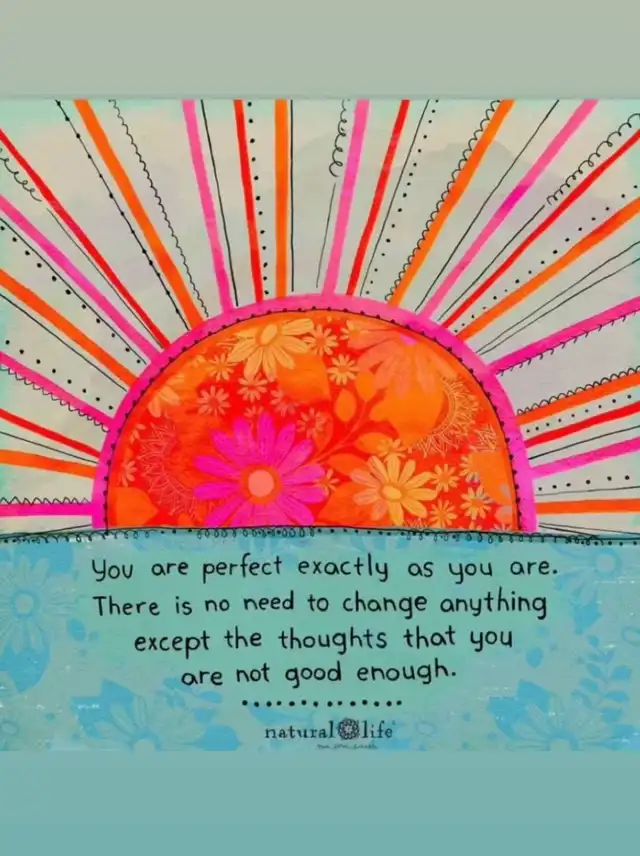 You are perfect exactly as you are.
There is no need to change anything
except the thoughts that you
are not good enough.
natural life